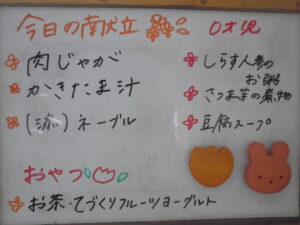 今日の献立
肉じゃが
かきたま汁
(添)ネーブル
おやつ
お茶・てづくりフルーツヨーグルト
0才児
しらす人参の
お粥
さつま芋の煮物
豆腐スープ